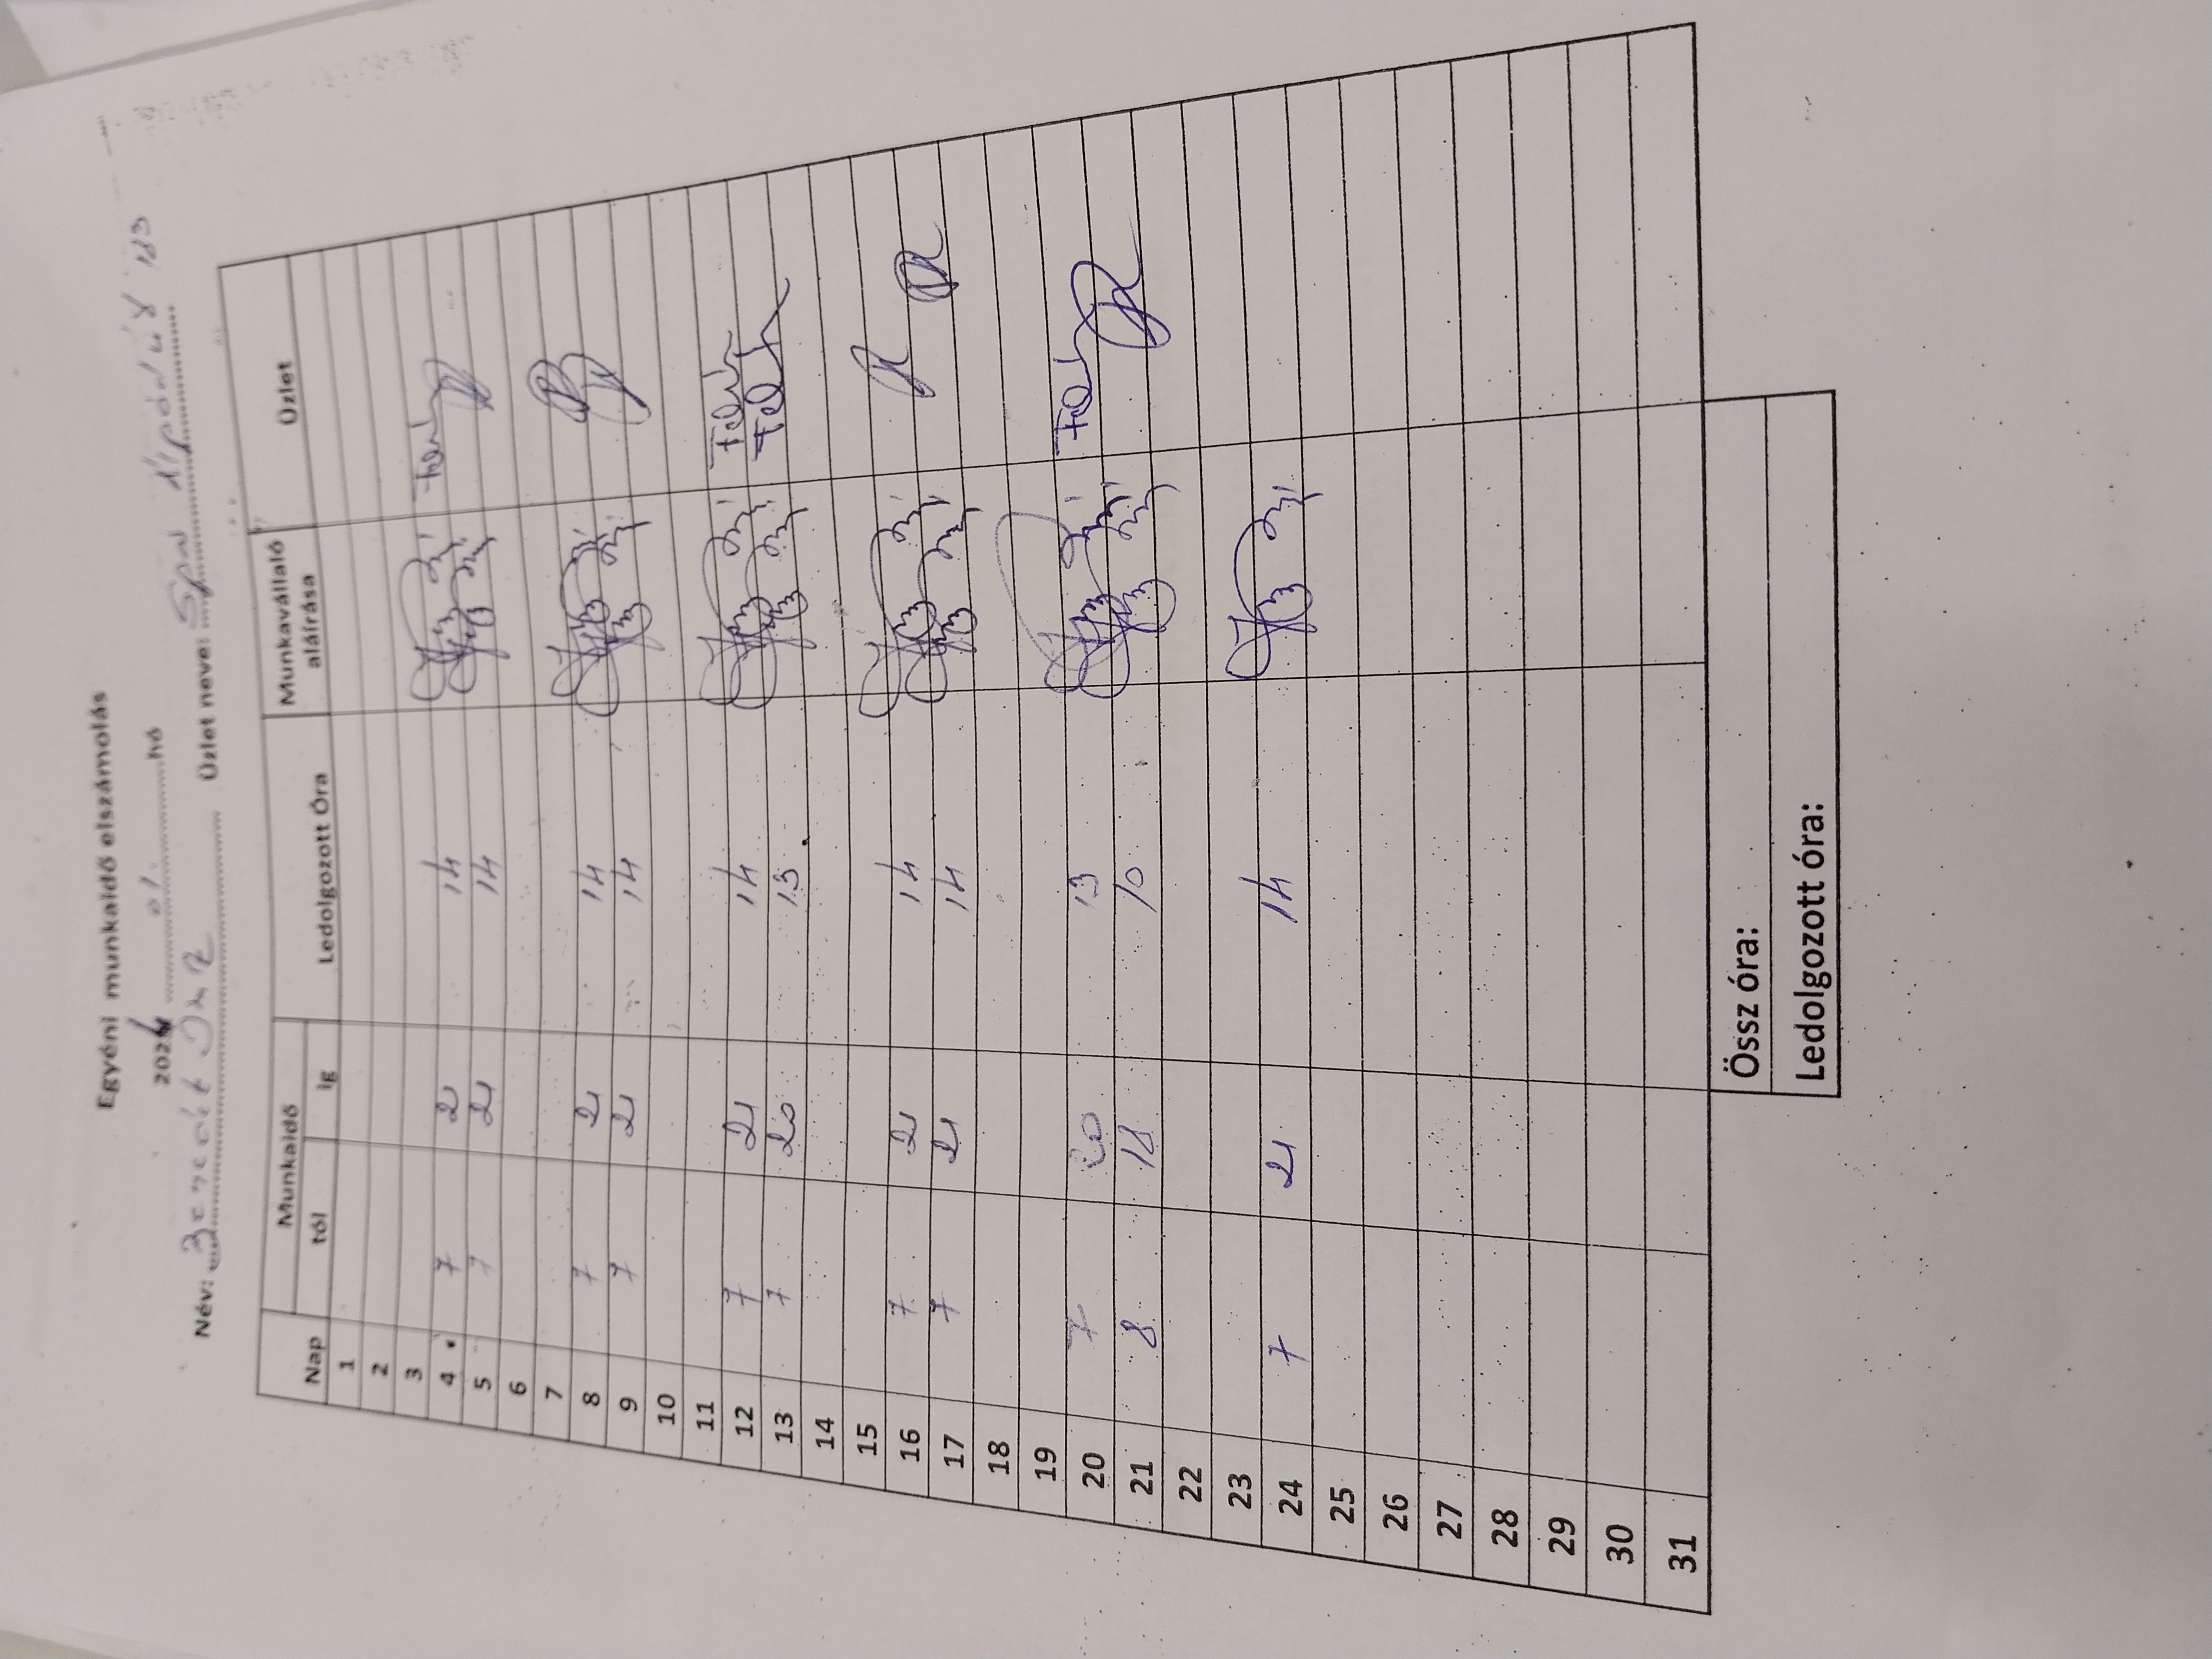 Egyéni munkaidő elszámolás
2026 01. hó
Név: Üzlet neve: Spar Árpád út 183
Nap Munkaidő Ledolgozott Óra Munkavállaló aláírása Üzlet
tól ig
1
2
3
4 7 21 14
5 7 21 14
6
7
8 7 21 14
9 7 21 14
10
11
12 7 21 14
13 7 20 13
14
15
16 7 21 14
17 7 21 14
18
19
20 7 20 13
21 8 18 10
22
23
24 7 21 14
25
26
27
28
29
30
31
Össz óra:
Ledolgozott óra: